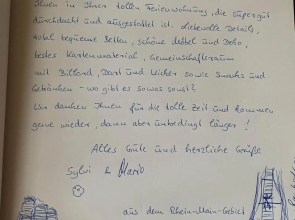 Ihnen in Ihrer tollen Ferienwohnung, die supergut
durchdacht und ausgestattet ist. Liebevolle Details,
total bequeme Betten, schöne Möbel und Deko,
bestes Kartenmaterial, Gemeinschaftsraum
mit Billard, Dart und Kicker sowie Snacks und
Getränken - wo gibt es sowas sonst?
Wir danken Ihnen für die tolle Zeit und kommen
gerne wieder, dann aber unbedingt länger!
Alles Gute und herzliche Grüße
Sylvi & Mario
aus dem Rhein-Main-Gebiet